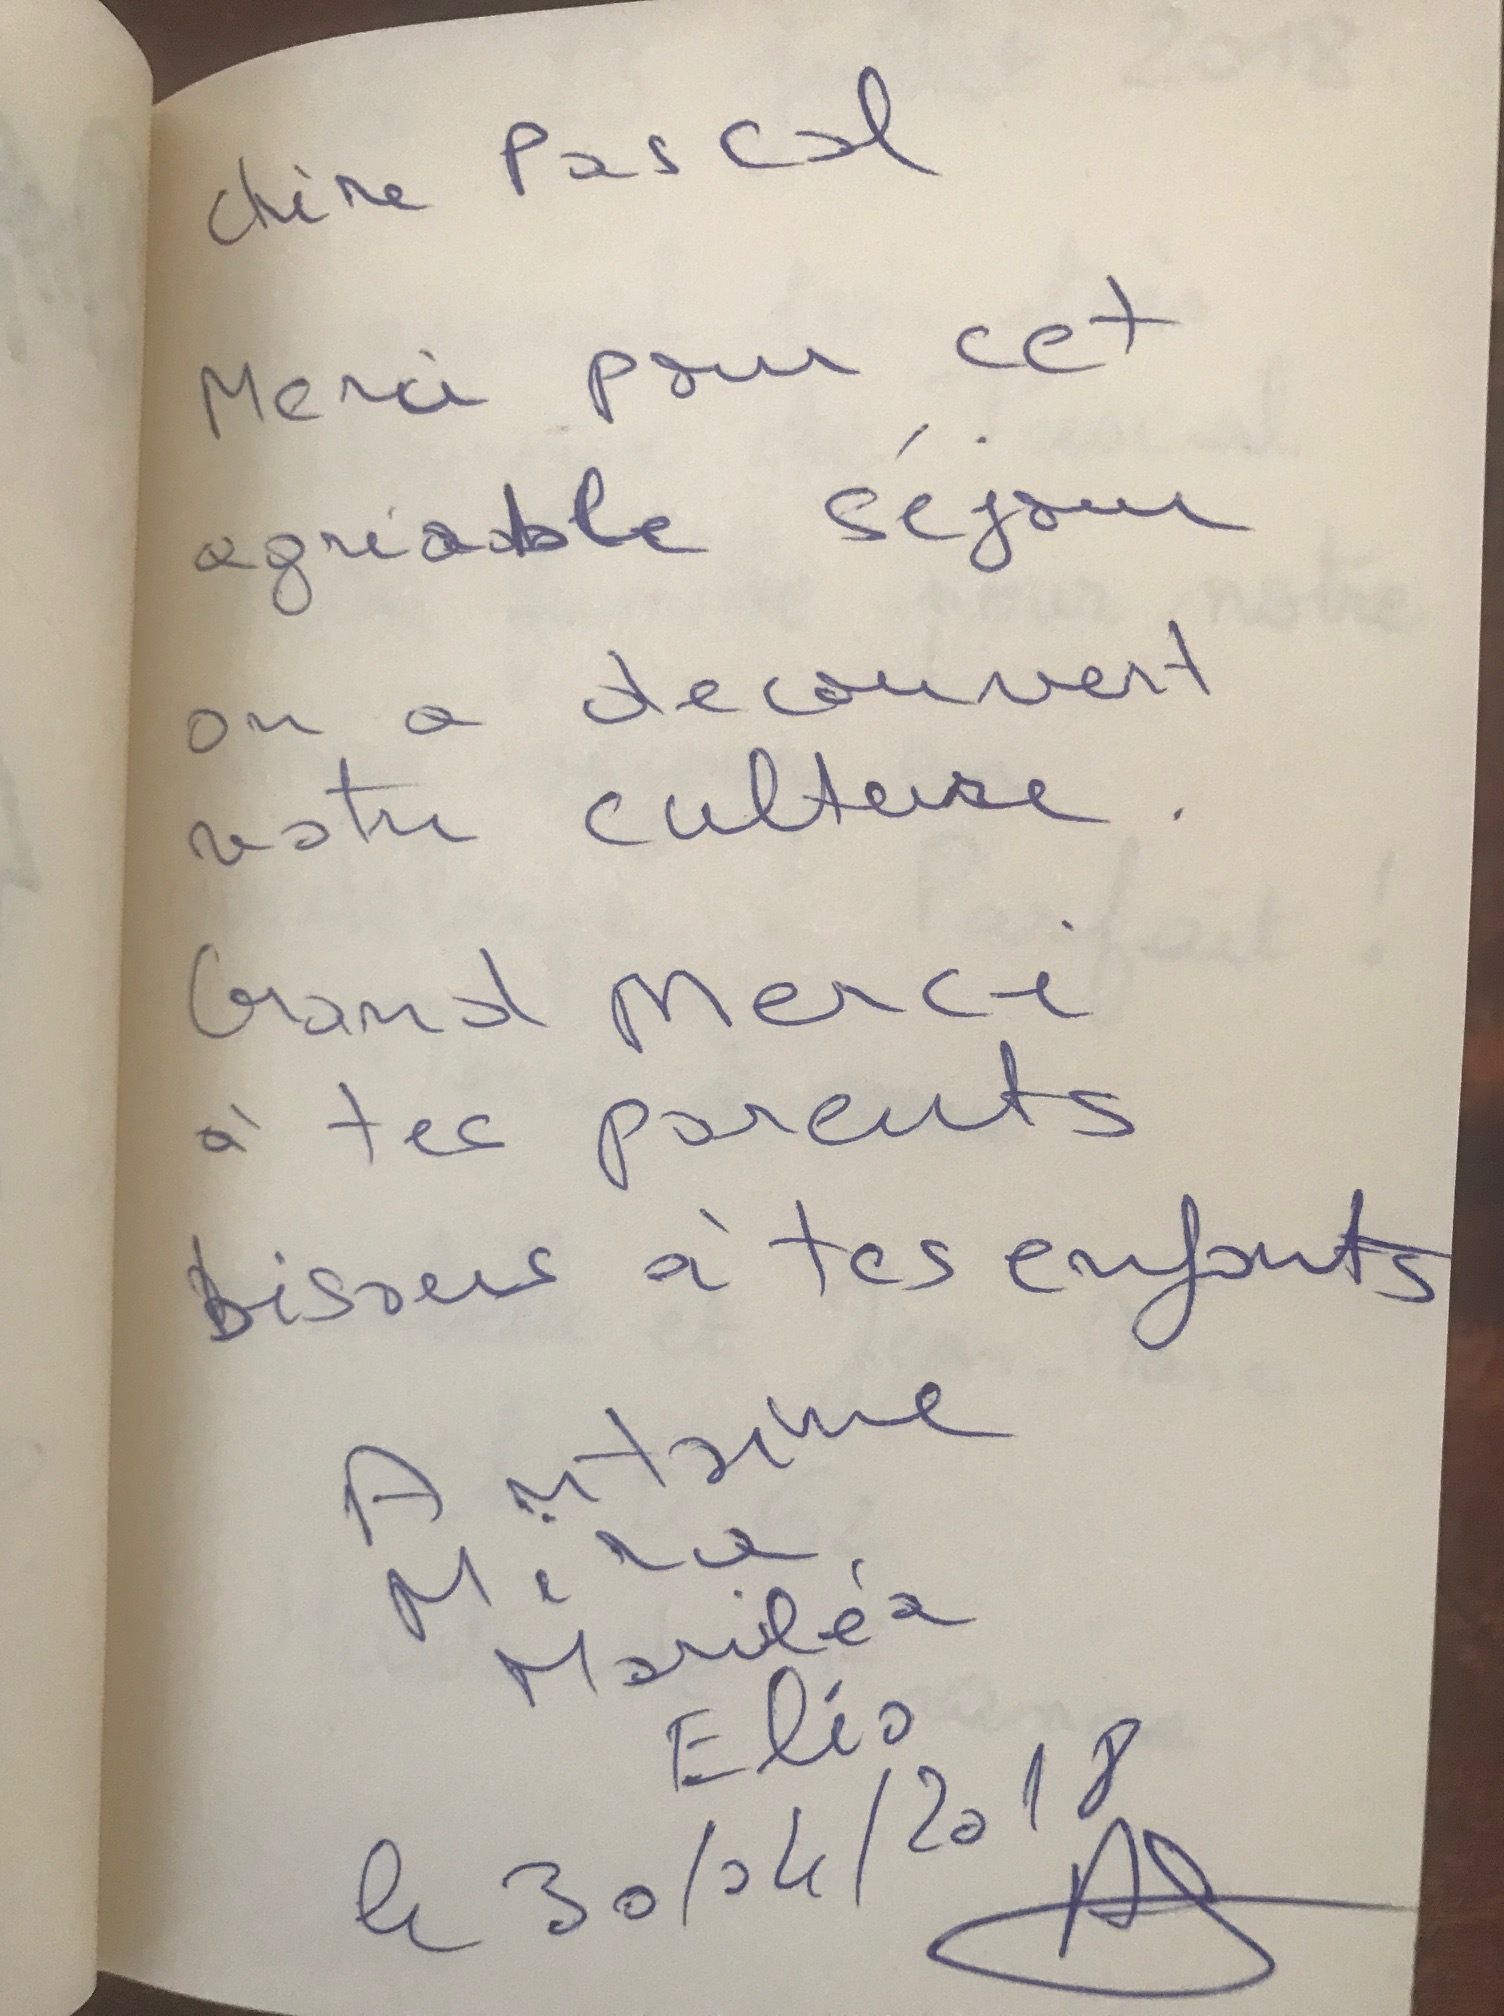 chère Pascal
Merci pour cet
agriable séjour
on a decouvert
votre culture.
Grand Merci
à tes parents
bisous à tes enfants
Antoine
Mira
Mariléa
Elio
le 30/04/2018